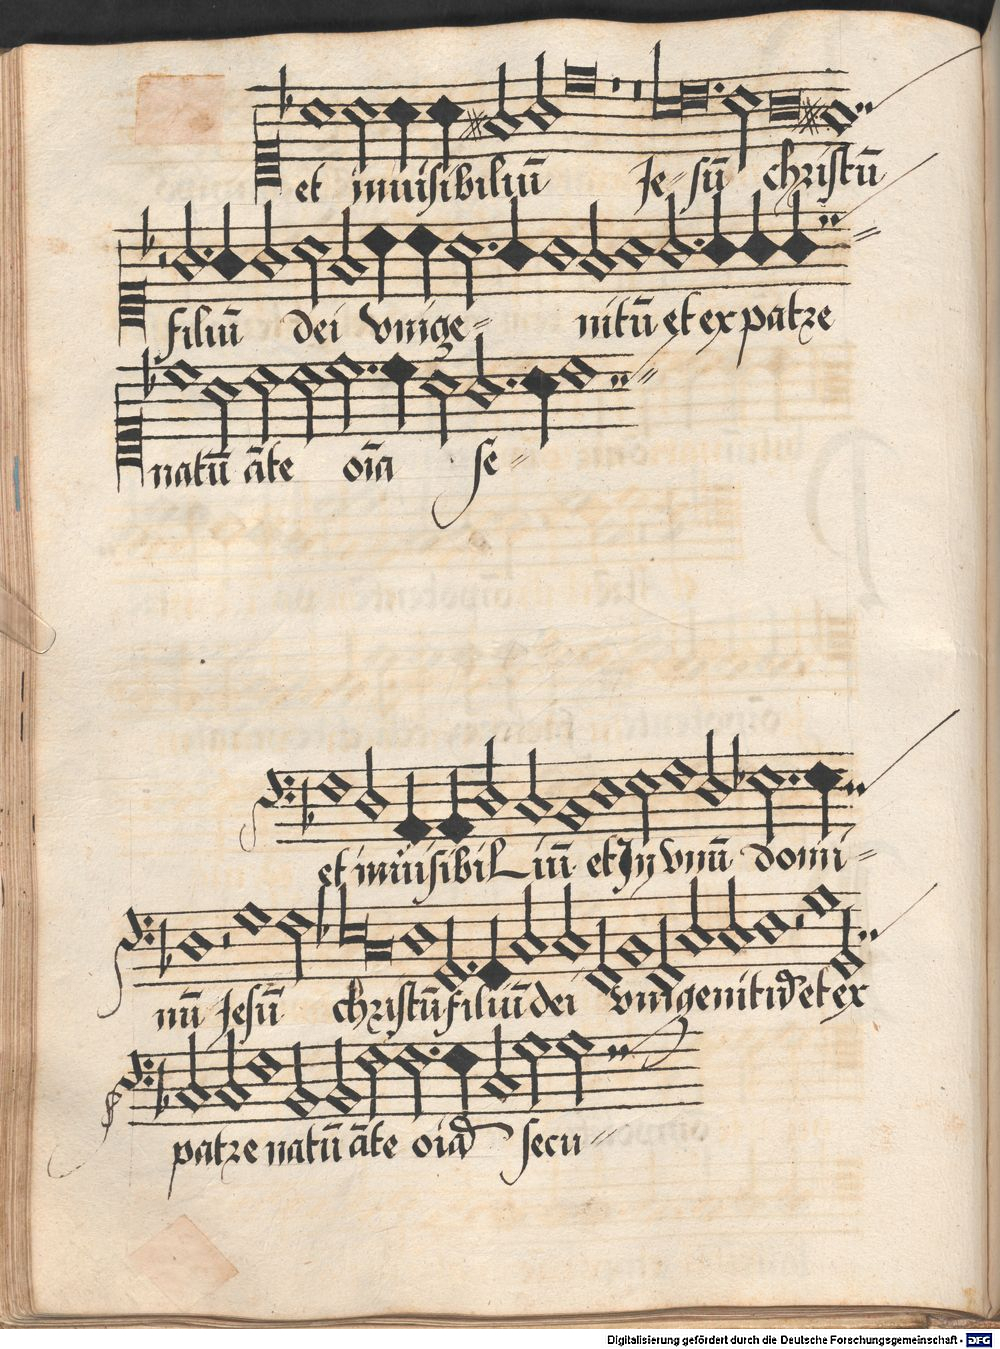 et inuisibiliū Je= sū christū
filiū dei vnige= nitū et ex patre
natū āte oīa se=
et inuisibiliū et Jn vnū domi=
nū Jesū christū filiū dei vnigenitū et ex
patre natū āte oīa secu=
Digitalisierung gefördert durch die Deutsche Forschungsgemeinschaft - DFG